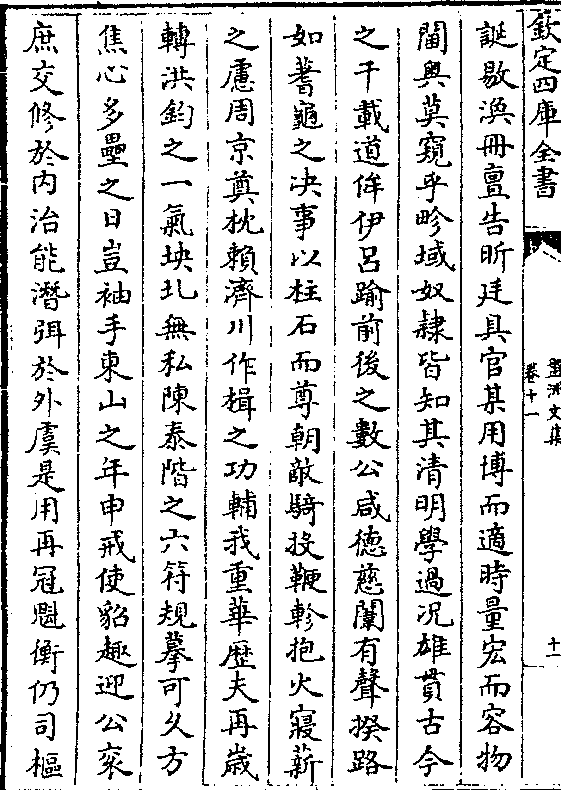 欽定四庫全書
盤洲文集
卷十一
十一
誕敭渙冊亶告昕廷具官某用博而適時量宏而容物
閫奥莫窺乎畛域奴隸皆知其清明學過况雄貫古今
之千載道侔伊吕踰前後之數公咸德慈闈有聲揆路
如蓍龜之决事以柱石而尊朝敵騎投鞭軫抱火寢薪
之慮周京奠枕賴濟川作楫之功輔我重華歴夫再歲
轉洪鈞之一氣坱圠無私陳泰階之六符規摹可久方
焦心多壘之日豈袖手東山之年申戒使軺趣迎公衮
庶交修於内治能潛弭於外虞是用再冠魁衡仍司樞